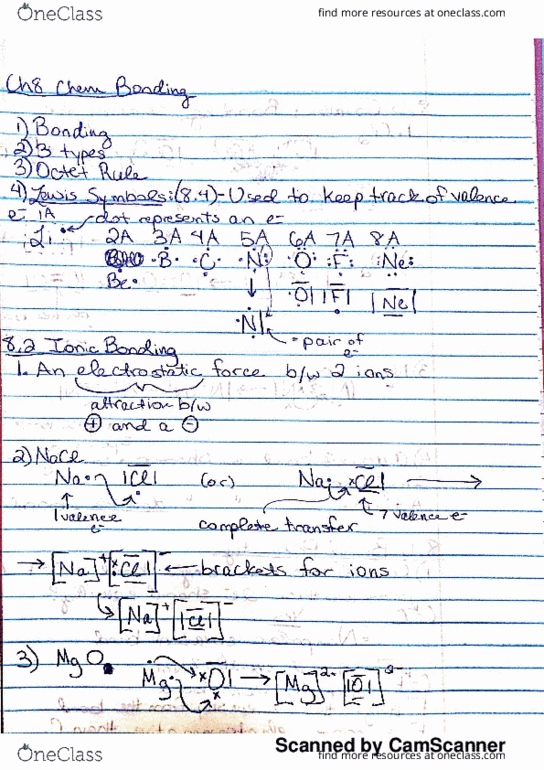 OneClass
find more resources at oneclass.com
Ch8 Chem Bonding
1) Bonding
2) 3 types
3) Octet Rule
4) Lewis Symbols: (8.4) - Used to keep track of valence
e- 1A dot represents an e-
Li· 2A 3A 4A 5A 6A 7A 8A
·B· ·C· ·N: ·O: ·F: :Ne:
Be· ·O| |F| |Ne|
·N|
= pair of e-
8.2 Ionic Bonding
1. An electrostatic force b/w 2 ions
attraction b/w
⊕ and a ⊖
2) NaCl
Na· |Cl| (or) Na· ×Cl| →
1 valence e- complete transfer 7 valence e-
→ [Na]+ [×Cl|]- ← brackets for ions
↳ [Na]+ [|Cl|]-
3) MgO
Mg: ×O| → [Mg]2+ [|O|]2-
Scanned by CamScanner
OneClass
find more resources at oneclass.com